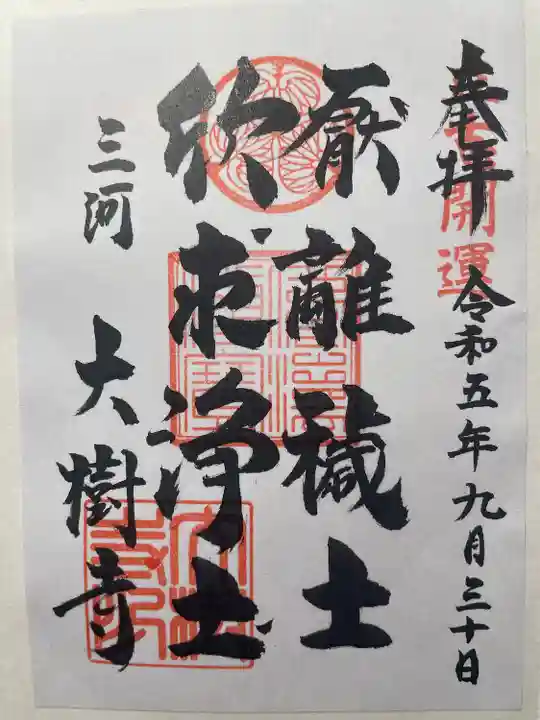 奉拝 令和五年九月三十日
開運
厭離穢土
欣求浄土
三河 大樹寺